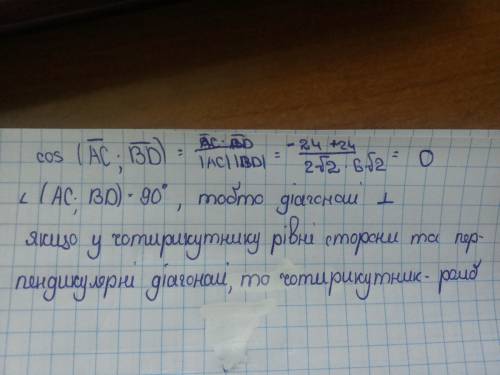 cos (A̅C̅; B̅D̅) = A̅C̅·B̅D̅ / |AC||BD| = -24+24 / 2√2·6√2 = 0
∠ (AC; BD) = 90°, тобто діагоналі ⊥
якщо у чотирикутнику рівні сторони та пер-
пендикулярні діагоналі, то чотирикутник - ромб